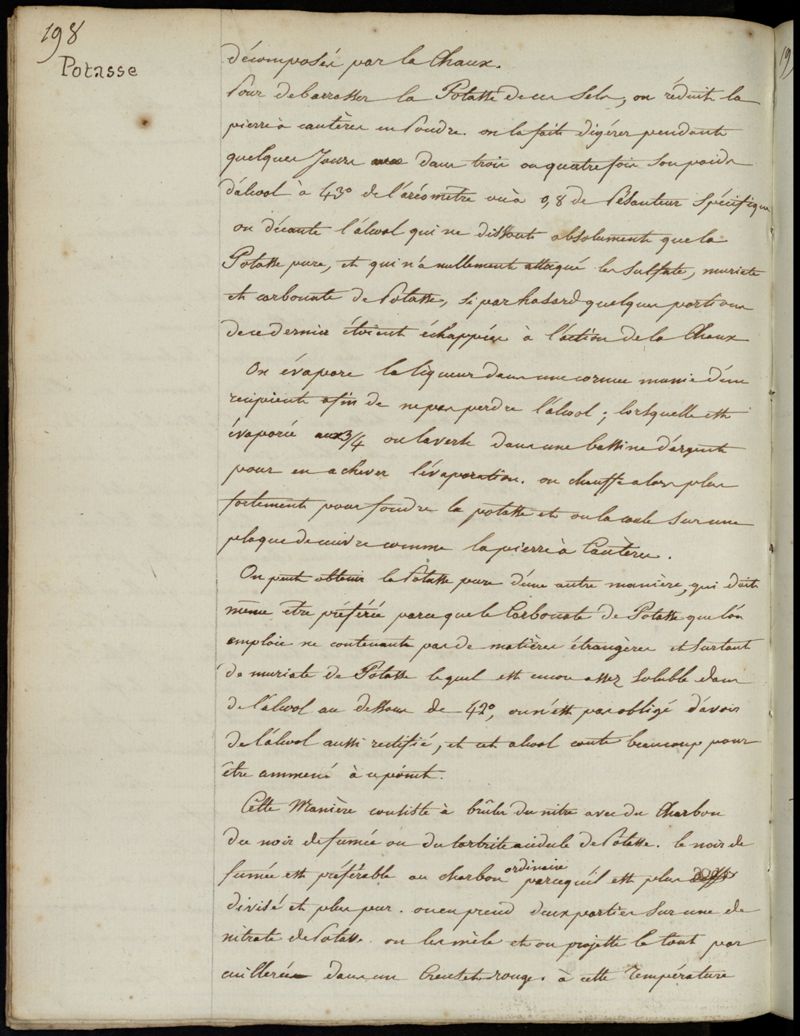 198
Potasse
décomposés par la Chaux.
Pour debarrasser la Potasse de ces Sels, on réduit la
pierre à cautère en Poudre. on la fait digérer pendant
quelques Jours dans trois ou quatre fois son poids
d'álcool à 43° de l'aréomètre ou à 0,8 de Pésanteur Spécifique
on décante l'álcool qui ne dissout absolument que la
Potasse pure, et qui n'a nullement attaqué les Sulfate, muriate
et carbonate de Potasse, si par hasard quelques portions
de ce dernier étoient échappées à l'action de la Chaux
On évapore la liqueur dans une cornue munie d'un
recipient afin de ne pas perdre l'álcool; lorsqu'elle est
évaporée aux 3/4 on la verse dans une bassine d'argent
pour en achever l'évaporation. on chauffe alors plus
fortement pour fondre la potasse et on la coule sur une
plaque de cuivre comme la pierre à Cautère.
On peut obtenir la Potasse pure d'une autre manière, qui doit
même être préférée parceque le Carbonate de Potasse que l'on
emploie ne contenant pas de matières étrangères et surtout
de muriate de Potasse lequel est encore assez soluble dans
de l'álcool au dessous de 42°, on n'est pas obligé d'avoir
de l'álcool aussi rectifié, et cet alcool coute beaucoup pour
être ammené à ce point.
Cette Manière consiste à brûler du nitre avec du Charbon
du noir de fumée ou du tartrite acidule de Potasse. le noir de
fumée est préférable au charbon ordinaire parcequ'il est plus
divisé et plus pur. on en prend deux parties sur une de
nitrate de Potasse. on les mêle et on projette le tout par
cuillerée dans un Creuset rouge. à cette Température
19